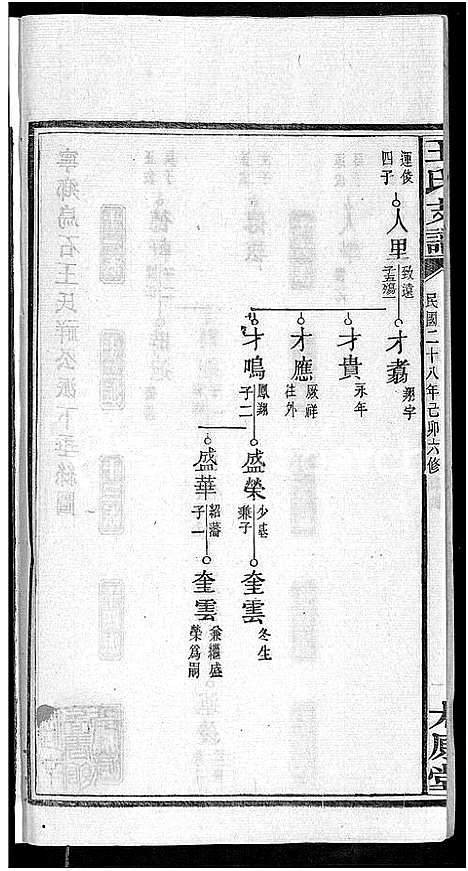 王氏支譜
民國二十八年己卯六修
太原堂
運俊
四子
人里
致遠
子五殤一
才翥
翔宇
才貴
永年
才應
厥祥
往外
才鳴
鳳翔
子二
盛榮
少基
兼子
奎雲
冬生
盛華
紹藩
子一
奎雲
兼繼盛
榮爲嗣
寧鄉烏石王氏祥公派下垂絲圖